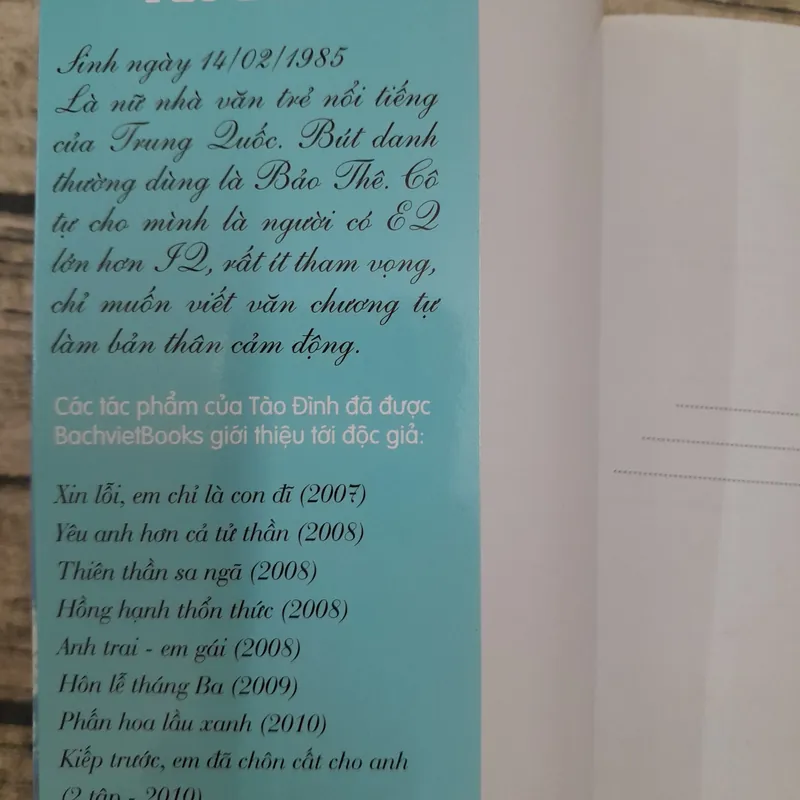 Sinh ngày 14/02/1985
Là nữ nhà văn trẻ nổi tiếng
của Trung Quốc. Bút danh
thường dùng là Bảo Thê. Cô
tự cho mình là người có EQ
lớn hơn IQ, rất ít tham vọng,
chỉ muốn viết văn chương tự
làm bản thân cảm động.
Các tác phẩm của Tào Đình đã được
BachvietBooks giới thiệu tới độc giả:
Xin lỗi, em chỉ là con đĩ (2007)
Yêu anh hơn cả tử thần (2008)
Thiên thần sa ngã (2008)
Hồng hạnh thổn thức (2008)
Anh trai - em gái (2008)
Hôn lễ tháng Ba (2009)
Phấn hoa lầu xanh (2010)
Kiếp trước, em đã chôn cất cho anh
(2 tập - 2010)